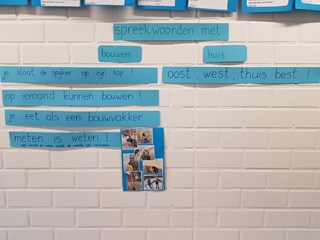 spreekwoorden met
bouwen
huis
je slaat de spijker op zijn kop !
oost, west, thuis best !
op iemand kunnen bouwen !
je eet als een bouwvakker
meten is weten !